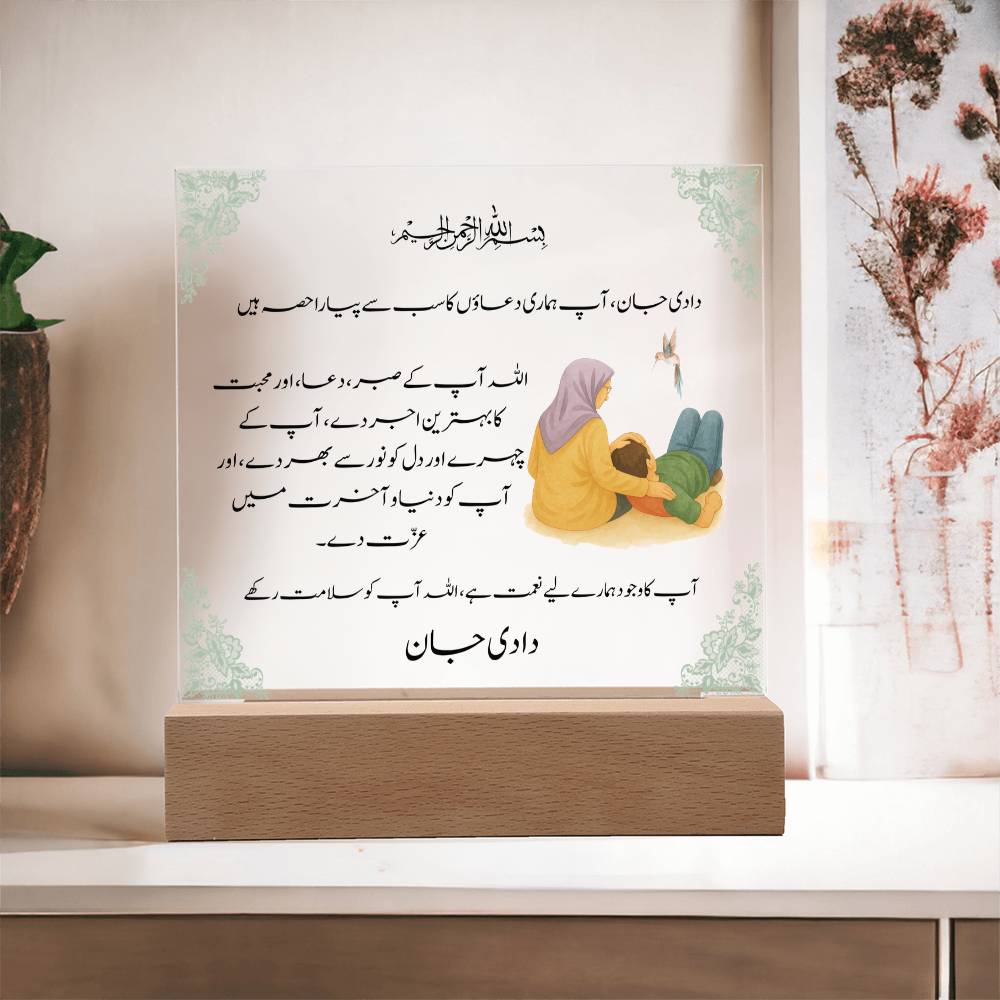 بسم الله الرحمن الرحيم
دادی جان، آپ ہماری دعاؤں کا سب سے پیارا حصہ ہیں
اللہ آپ کے صبر، دعا، اور محبت
کا بہترین اجر دے، آپ کے
چہرے اور دل کو نور سے بھر دے، اور
آپ کو دنیا و آخرت میں
عزّت دے۔
آپ کا وجود ہمارے لیے نعمت ہے، اللہ آپ کو سلامت رکھے
دادی جان